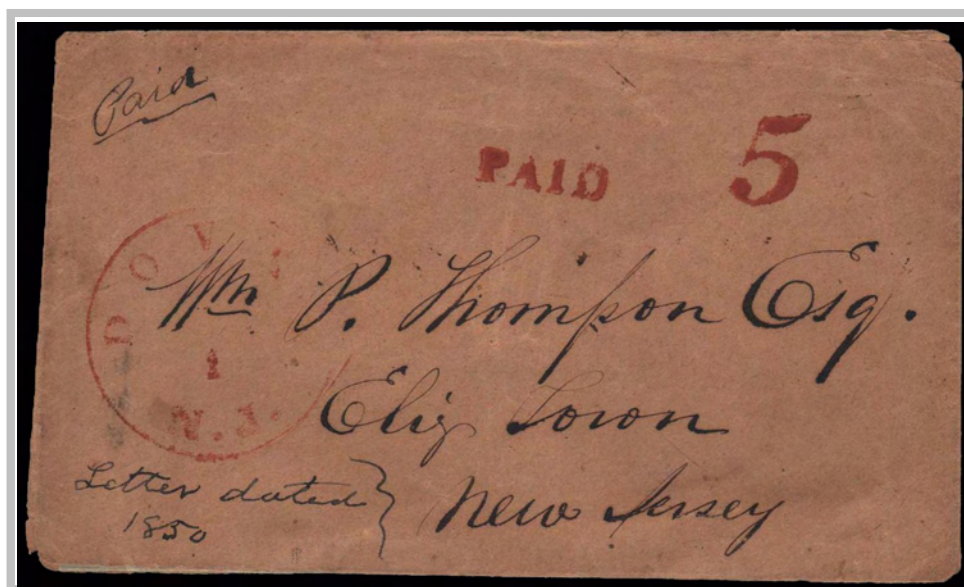 Paid
PAID 5
DOV
1
N.J.
Wm P. Thompson Esq.
Eliz Town
New Jersey
Letter dated
1850